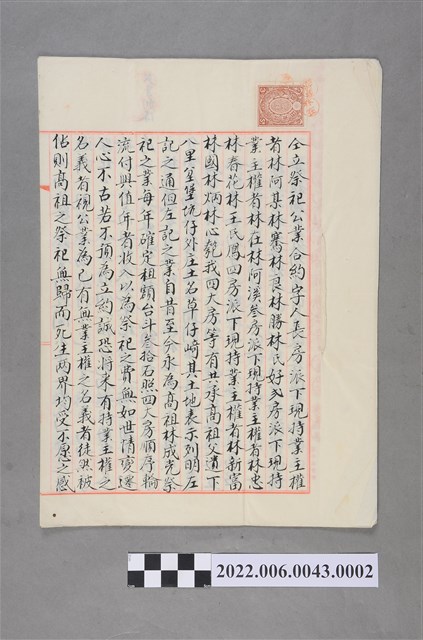 仝立祭祀公業合約字人長房派下現持業主權
者林阿尋林騫林良林勝林氏好弍房派下現持
業主權者林在林阿漢叁房派下現持業主權者林忠
林春花林王氏鳳四房派下現持業主權者林新富
林國林炳林心匏我四大房等有共承高祖父遺下
八里坌堡坑仔外庄土名草仔崎其土地表示列明左
記之通但左記之業自昔至今永為高祖林成光祭
祀之業每年確定租額台斗叁拾石照四大房順序輪
流付與值年者收入以為祭祀之費無如世情變遷
人心不古若不預為立約誠恐將來有持業主權之
名義者視公業為已有無業主權之名義者徒然被
佔則高祖之祭祀無歸而死生兩界均受不愿之感
2022.006.0043.0002